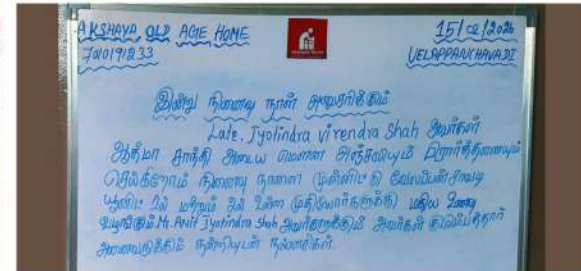 AKSHAYA OLD AGE HOME
7210191233
15/02/2026
VELAPPANCHAVADI
இன்று நினைவு நாள் அனுசரிக்கும்
Late. Jyotindra virendra Shah அவர்கள்
ஆத்மா சாந்தி அடைய மௌன அஞ்சலியும் பிரார்த்தனையும்
செய்கிறோம் நினைவு நாளை முன்னிட்டு வேலப்பன்சாவடி
யூனிட் 2ல் மற்றும் 3ல் உள்ள முதியோர்களுக்கு மதிய உணவு
வழங்கும் Mr. Anil Jyotindra shah அவர்களுக்கும் அவர்கள் குடும்பத்தார்
அனைவருக்கும் நன்றியுடன் நல்லாசிகள்.